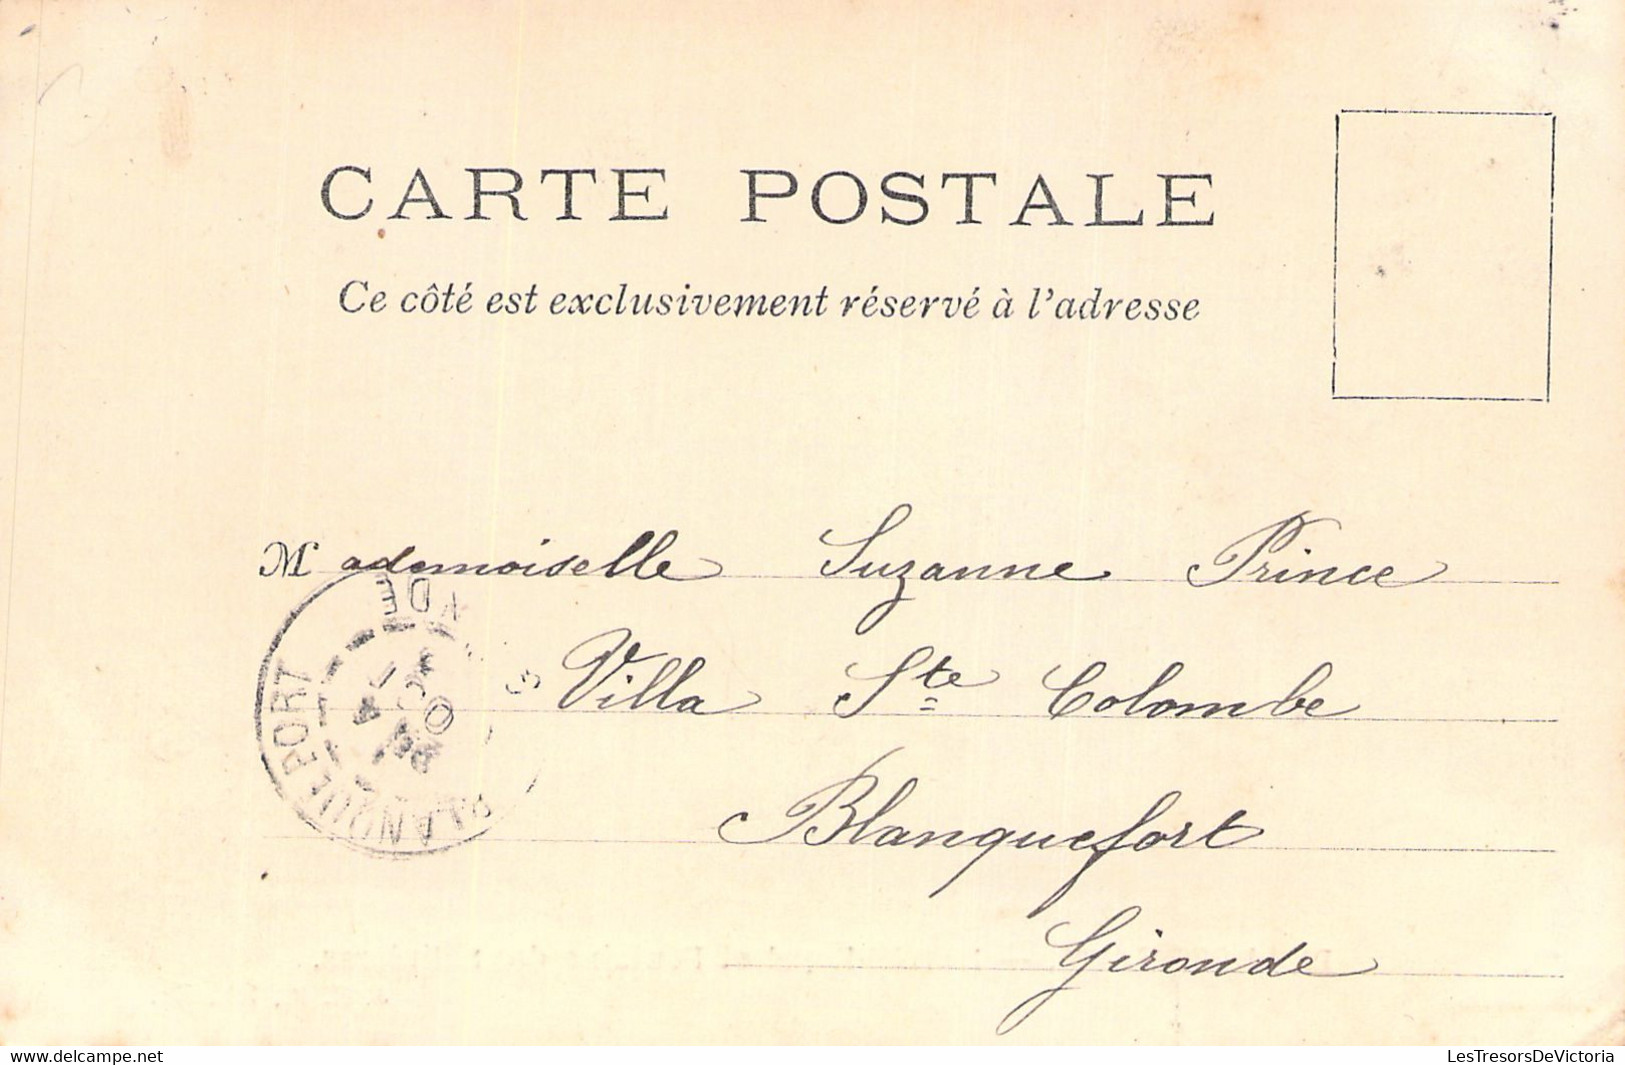 CARTE POSTALE
Ce côté est exclusivement réservé à l'adresse
Mademoiselle Suzanne Prince
Villa Ste Colombe
Blanquefort
Gironde
BLANQUEFORT
DE
www.delcampe.net
LesTresorsDeVictoria